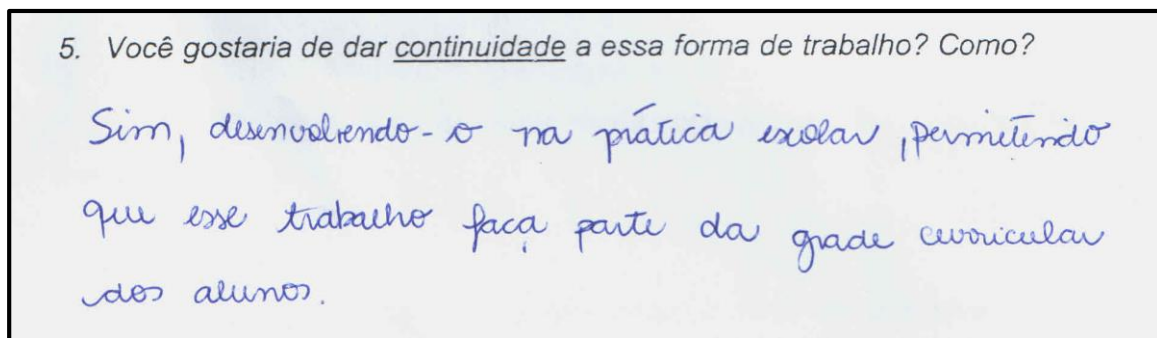 5. Você gostaria de dar continuidade a essa forma de trabalho? Como?
Sim, desenvolvendo-o na prática escolar, permitindo
que esse trabalho faça parte da grade curricular
dos alunos.